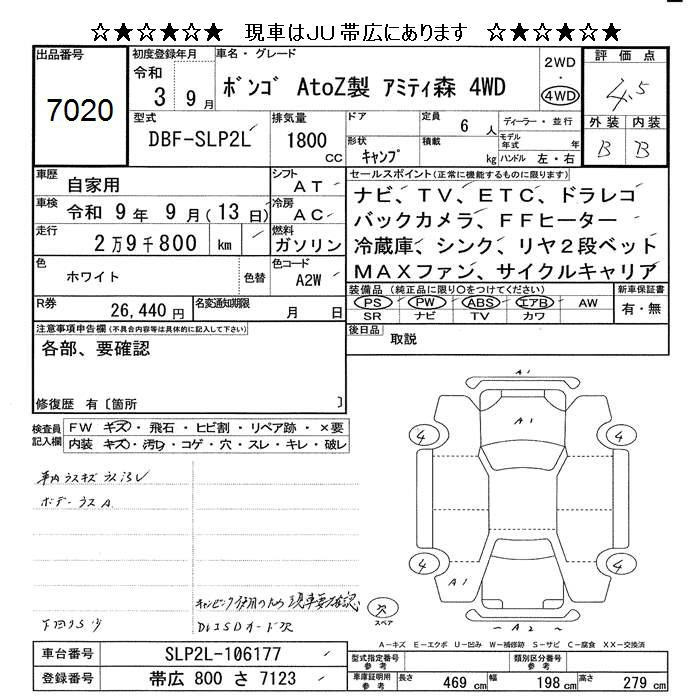 ☆★☆★☆★ 現車はJU帯広にあります ☆★☆★☆★
出品番号
7020
初度登録年月
令和
3 9月
車名・グレード
ボンゴ AtoZ製 アミティ森 4WD
2WD
・
4WD
評価点
4.5
外装 内装
B B
型式
DBF-SLP2L
排気量
1800
CC
ドア
形状
キャンプ
定員
6 人
積載
kg
ディーラー・並行
モデル年式 年
ハンドル 左・右
車歴
自家用
シフト
AT
車検
令和 9年 9月(13日)
冷房
AC
走行
2万9千800 km
燃料
ガソリン
色
ホワイト
色替
色コード
A2W
R券
26,440円
名変通知期限
月 日
セールスポイント(正常に機能するものに限ります)
ナビ、TV、ETC、ドラレコ
バックカメラ、FFヒーター
冷蔵庫、シンク、リヤ2段ベット
MAXファン、サイクルキャリア
装備品 (純正品に限り○をつけてください)
PS PW ABS エアB AW
SR ナビ TV カワ
新車保証書
有・無
後日品
取説
注意事項申告欄(不具合内容等は具体的に記入して下さい)
各部、要確認
修復歴 有〔箇所 〕
検査員記入欄
FW キズ・飛石・ヒビ割・リペア跡・×要
内装 キズ・汚レ・コゲ・穴・スレ・キレ・破レ
ボデーウスA
現車要確認
A1
A1
4
4
4
4
A1
A2
スペア
A-キズ E-エクボ U-凹み W-補修跡 S-サビ C-腐食 XX-交換済
車台番号
SLP2L-106177
登録番号
帯広 800 さ 7123
型式指定番号
参考
類別区分番号
参考
車庫証明用
参考
長さ 469 cm
幅 198 cm
高さ 279 cm